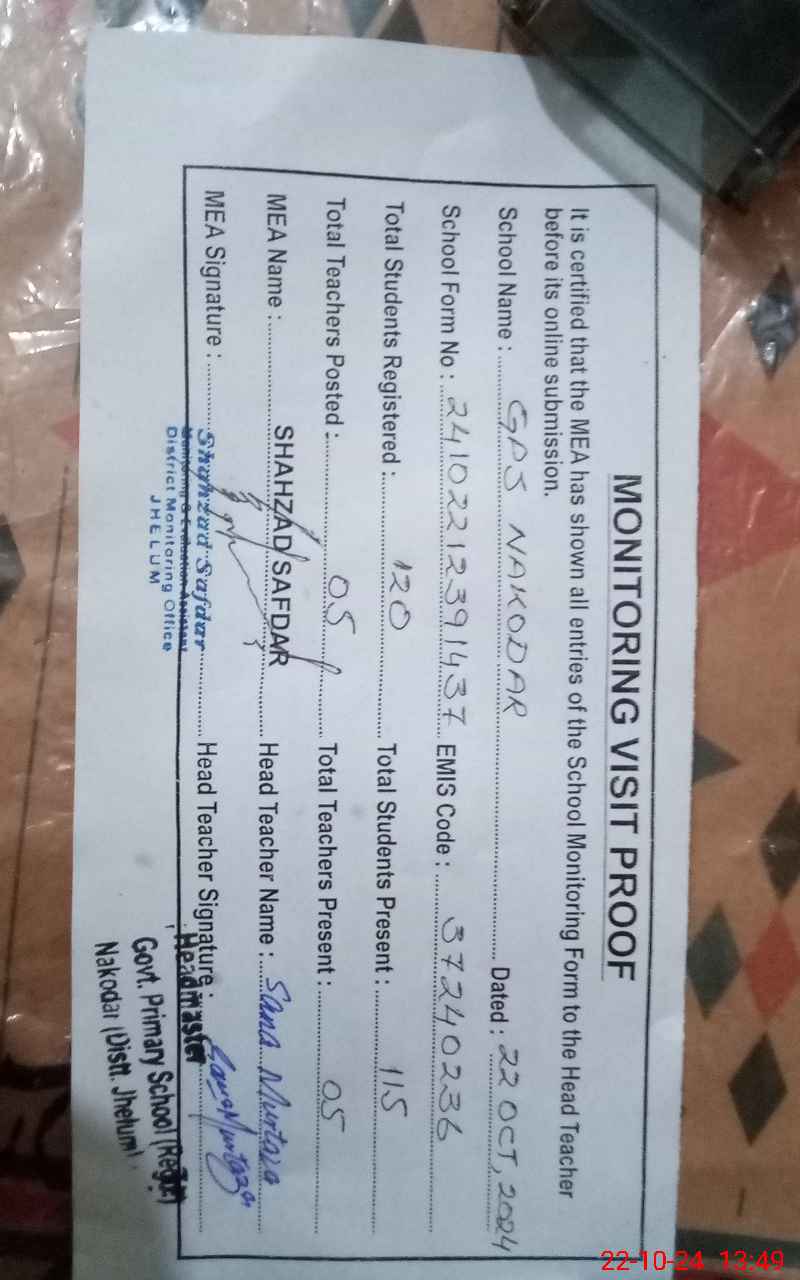 MONITORING VISIT PROOF
It is certified that the MEA has shown all entries of the School Monitoring Form to the Head Teacher
before its online submission.
School Name : GPS NAKODAR Dated : 22 OCT, 2024
School Form No : 24102212391437 EMIS Code : 37240236
Total Students Registered : 120 Total Students Present : 115
Total Teachers Posted : 05 Total Teachers Present : 05
MEA Name : SHAHZAD SAFDAR Head Teacher Name : Sana Murtaza
MEA Signature : Head Teacher Signature : Sana Murtaza
Shahzad Safdar
Monitoring & Evaluation Assistant
District Monitoring Office
JHELUM
Headmaster
Govt. Primary School (Regd:)
Nakodar (Distt. Jhelum)
22-10-24 13:49